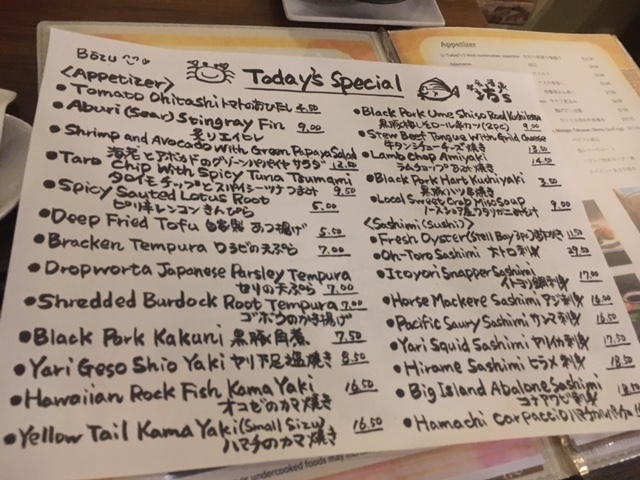 Bozu
Today's Special
坊's
<Appetizer>
• Tomato Ohitashi トマトのおひたし 4.50
• Aburi (Sear) Stingray Fin
炙りエイヒレ 9.00
• Shrimp and Avocado With Green Papaya Salad
海老とアボカドのグリーンパパイヤサラダ 12.50
• Taro Chip With Spicy Tuna Tsumami
タロイモチップとスパイシーツナつまみ 9.50
• Spicy Sauted Lotus Root
ピリ辛レンコンきんぴら 5.00
• Deep Fried Tofu 自家製あつ揚げ 5.50
• Bracken Tempura わらびの天ぷら 7.00
• Dropworta Japanese Parsley Tempura
セリの天ぷら 7.00
• Shredded Burdock Root Tempura 7.00
ゴボウのかき揚げ
• Black Pork Kakuni 黒豚角煮 7.50
• Yari Geso Shio Yaki ヤリ下足塩焼き 8.50
• Hawaiian Rock Fish Kama Yaki 16.50
オコゼのカマ焼き
• Yellow Tail Kama Yaki (Small Sizu) 16.50
ハマチのカマ焼き
• Black Pork Ume Shiso Rood Kushikatsu
黒豚梅しそロール串カツ (2pc) 9.00
• Stew Beef Tongue With Grild Cheese
牛タンシチューチーズ焼き 13.50
• Lamb Chop Amiyaki
ラムチョップあみ焼き 14.50
• Black Pork Hart Kushiyaki
黒豚ハツ串焼き 3.50
• Local Sweet Crab Miso Soup
ノースショア産ワタリガニみそ汁 9.00
<Sashimi (Sushi)>
• Fresh Oyster (Stell Bay 3pc) 岩がき 11.50
• Oh-Toro Sashimi 大トロ刺身 29.50
• Itoyori Snapper Sashimi
イトヨリ鯛刺身 17.00
• Horse Mackere Sashimi アジ刺身 16.00
• Pacific Saury Sashimi サンマ刺身 16.50
• Yari Squid Sashimi ヤリイカ刺身 17.50
• Hirame Sashimi ヒラメ刺身 18.50
• Big Island Abalone Sashimi
コナアワビ刺身
• Hamachi Carpaccio ハマチカルパッチョ
Appetizer
Appetizer
undercooked foods may